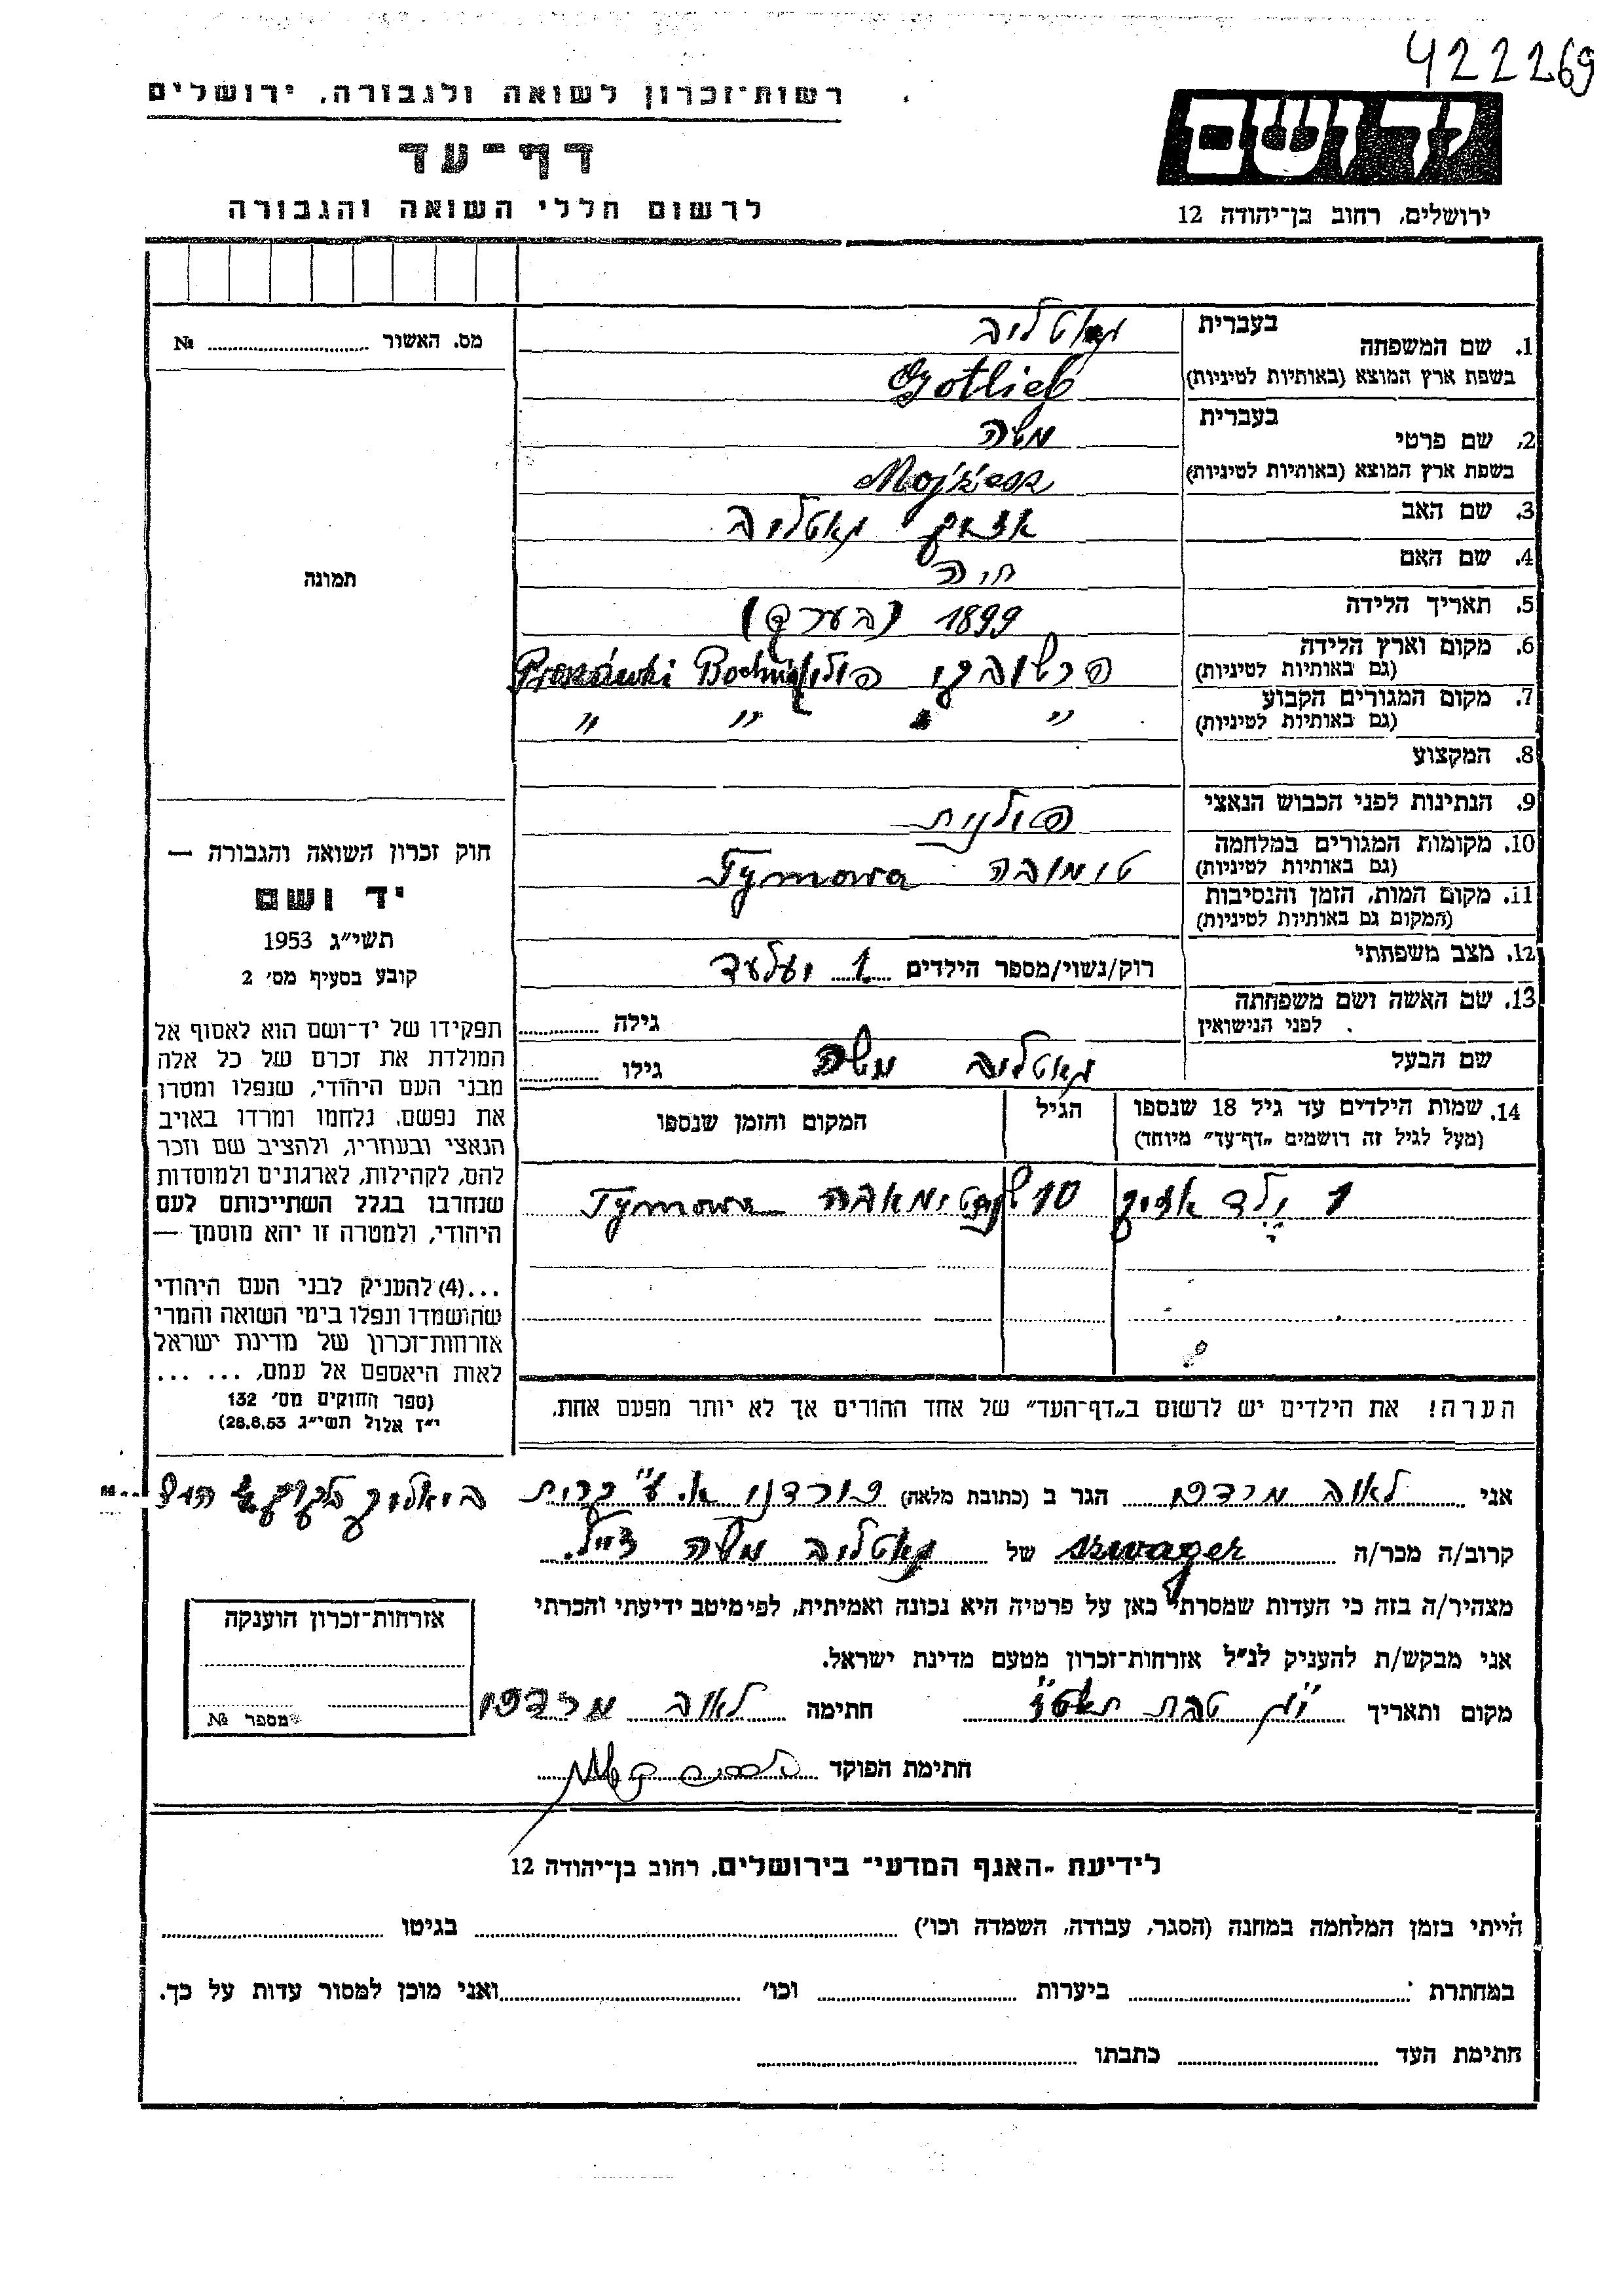 422269
רשות־זכרון לשואה ולגבורה, ירושלים
יד ושם
דף־עד
לרשום חללי השואה והגבורה
ירושלים, רחוב בן־יהודה 12
מס. האשור № 
תמונה
חוק זכרון השואה והגבורה —
יד ושם
תשי״ג 1953
קובע בסעיף מס׳ 2
תפקידו של יד־ושם הוא לאסוף אל
המולדת את זכרם של כל אלה
מבני העם היהודי, שנפלו ומסרו
את נפשם, נלחמו ומרדו באויב
הנאצי ובעוזריו, ולהציב שם וזכר
להם, לקהילות, לארגונים ולמוסדות
שנחרבו בגלל השתייכותם לעם
היהודי, ולמטרה זו יהא מוסמך —
...(4) להעניק לבני העם היהודי
שהושמדו ונפלו בימי השואה והמרי
אזרחות־זכרון של מדינת ישראל
לאות היאספם אל עמם, ... ...
(ספר החוקים מס׳ 132
י״ז אלול תשי״ג 28.8.53)
1. שם המשפחה בעברית גאטליב
בשפת ארץ המוצא (באותיות לטיניות) Gotlieb
2. שם פרטי בעברית משה
בשפת ארץ המוצא (באותיות לטיניות)
3. שם האב גאטליב
4. שם האם חיה
5. תאריך הלידה 1899 (בערך)
6. מקום וארץ הלידה
(גם באותיות לטיניות) פולין Bochnia
7. מקום המגורים הקבוע
(גם באותיות לטיניות) ״ ״ ״
8. המקצוע
9. הנתינות לפני הכבוש הנאצי פולנית
10. מקומות המגורים במלחמה
(גם באותיות לטיניות) טימובה Tymowa
11. מקום המות, הזמן והנסיבות
(המקום גם באותיות לטיניות)
12. מצב משפחתי רוק/נשוי/מספר הילדים 1
13. שם האשה ושם משפחתה
לפני הנישואין גילה
שם הבעל גאטליב משה גילו
14. שמות הילדים עד גיל 18 שנספו
(מעל לגיל זה רושמים „דף־עד״ מיוחד) הגיל המקום והזמן שנספו
1 ילד 10 טימאבה Tymowa
הערה! את הילדים יש לרשום ב„דף־העד״ של אחד ההורים אך לא יותר מפעם אחת.
אני לאוב מרדכי הגר ב (כתובת מלאה)
קרוב/ה מכר/ה szwager של גאטליב משה ז״ל
מצהיר/ה בזה כי העדות שמסרתי כאן על פרטיה היא נכונה ואמיתית, לפי מיטב ידיעתי והכרתי
אני מבקש/ת להעניק לנ״ל אזרחות־זכרון מטעם מדינת ישראל.
מקום ותאריך טבת חתימה לאוב מרדכי
חתימת הפוקד
אזרחות־זכרון הוענקה
מספר №
לידיעת ״האגף המדעי״ בירושלים, רחוב בן־יהודה 12
הייתי בזמן המלחמה במחנה (הסגר, עבודה, השמדה וכו׳) בגיטו
במחתרת ביערות וכו׳ ואני מוכן למסור עדות על כך.
חתימת העד כתבתו